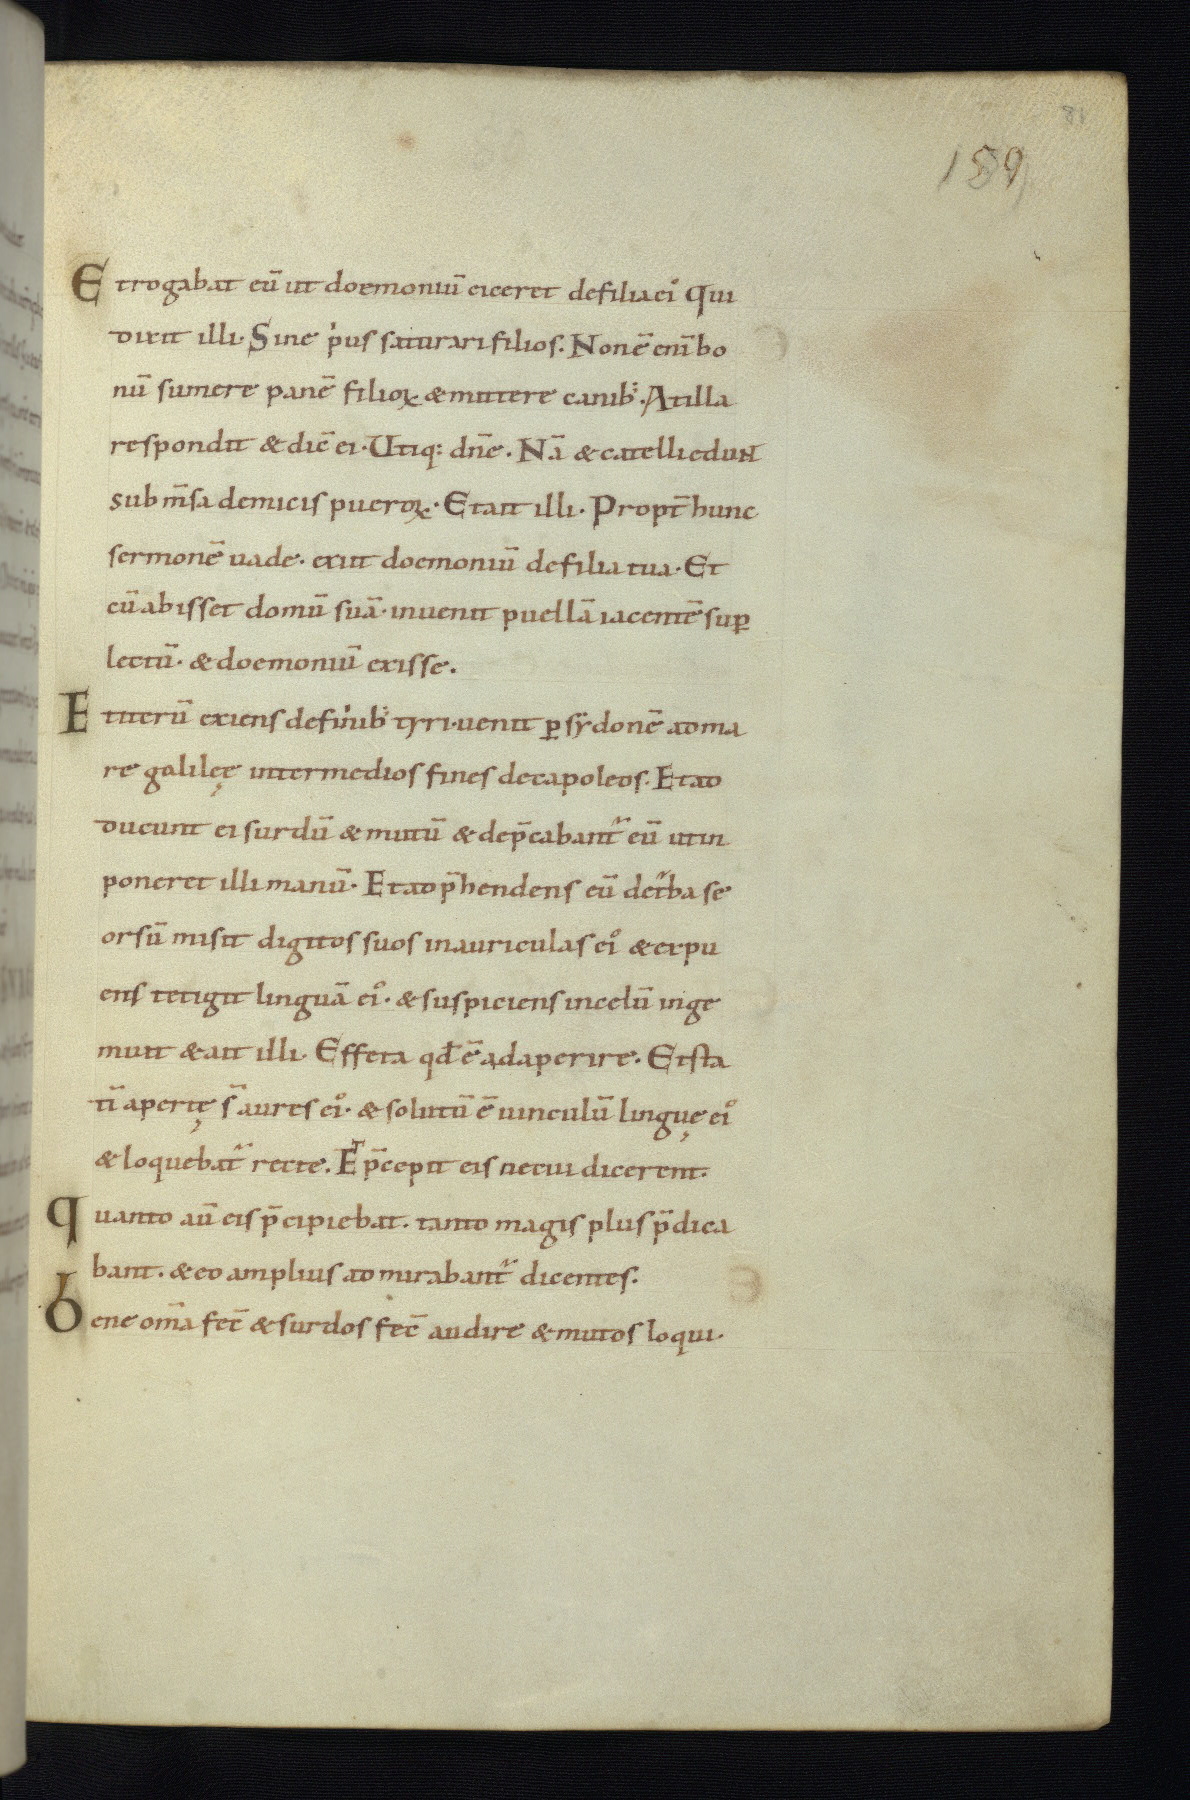 81
159
Et rogabat eū ut doemoniū eiceret de filia ei᾿ Qui
dixit illi. Sine p̍us saturari filios. Non ē eni̅ bo
nū sumere panē filioꝝ & mittere canib᾿. At illa
respondit & dic̄ ei. Utiq: dn̄e. Nā & catelli edunt
sub m̄sa de micis pueroꝝ. Et ait illi. Propt̄ hunc
sermonē uade. exiit doemoniū de filia tua. Et
cū abisset domū suā. inuenit puellā iacentē suꝑ
lectū. & doemoniū exisse.
Et iterū exiens de finib᾿ tyri. uenit ꝑ sydonē ad ma
re galileę inter medios fines decapoleos. Et ad
ducunt ei surdū & mutū & dep̄cabant᾿ eū ut in
poneret illi manū. Et adp̄hendens eū de t᾿ba se
orsū misit digitos suos in auriculas ei᾿ & expu
ens tetigit linguā ei᾿. & suspiciens in celū inge
muit & ait illi. Effeta qđ ē adaperire. Et sta
tī apertę s̄ aures ei᾿. & solutū ē uinculū linguę ei᾿
& loquebat᾿ recte. Et p̄cepit eis ne cui dicerent.
Quanto aū eis p̄cipiebat. tanto magis plus p̄dica
bant. & eo amplius admirabant᾿ dicentes.
Bene om̄a fec̄ & surdos fec̄ audire & mutos loqui.